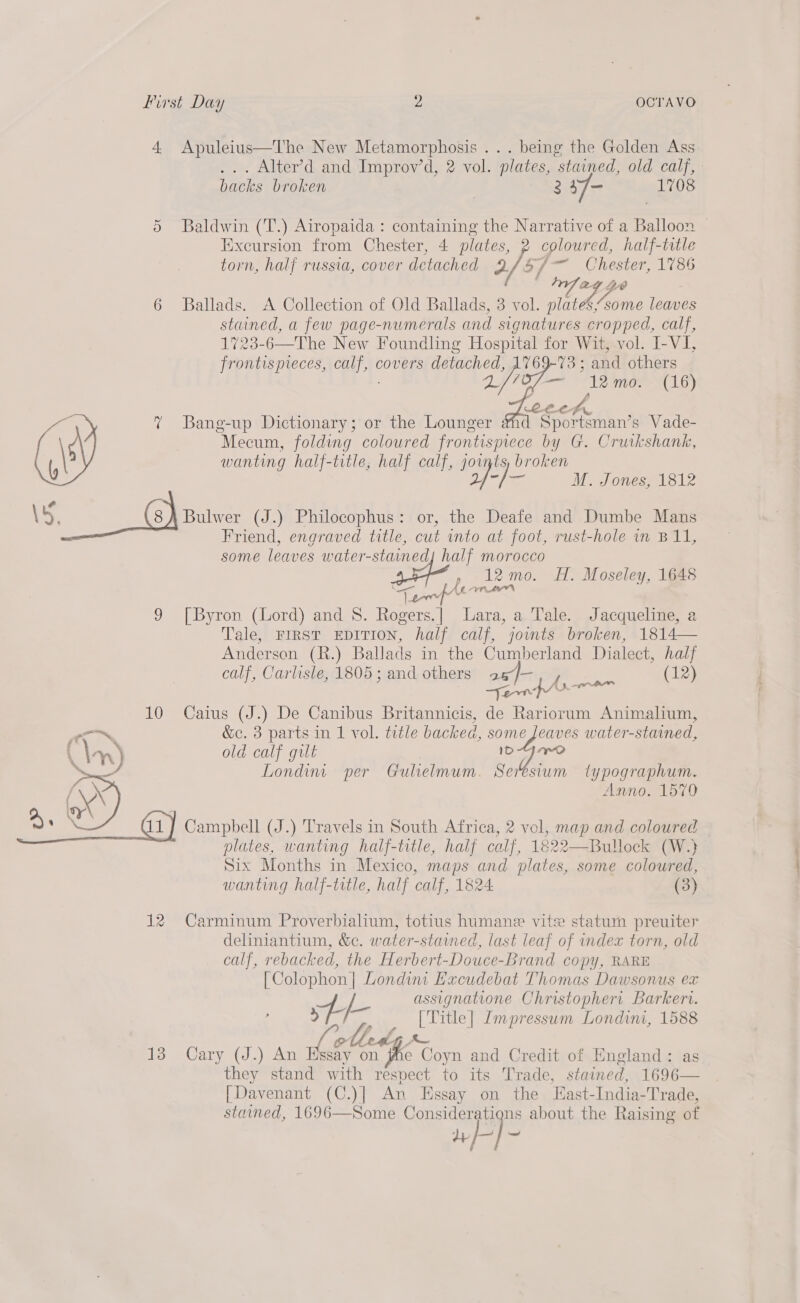 First Day 2 OCTAVO
4 Apuleius—The New Metamorphosis . . . being the Golden Ass
. . . Alter'd and Improv'd, 2 vol. plates, stained, old calf,
backs broken 1708
5 Baldwin (T.) Airopaida: containing the Narrative of a Balloon
Excursion from Chester, 4 plates, 2 coloured, half-title
torn, half russia, cover detached 2/5/- Chester, 1786
Maggs
6 Ballads. A Collection of Old Ballads, 3 vol. plates, some leaves
stained, a few page-numerals and signatures cropped, calf,
1723-6—The New Foundling Hospital for Wit, vol. I-VI,
frontispieces, calf, covers detached, 1769-73; and others
2/10/- 12mo. (16)
7 Bang-up Dictionary; or the Lounger and Sportsman's Vade-
Mecum, folding coloured frontispiece by G. Cruikshank,
wanting half-title, half calf, joints broken
2/-/- M. Jones, 1812
15. 8 Bulwer (J.) Philocophus: or, the Deafe and Dumbe Mans
Friend, engraved title, cut into at foot, rust-hole in B 11,
some leaves water-stained, half morocco
12mo. H. Moseley, 1648
Temperleman
9 [Byron (Lord) and S. Rogers.] Lara, a Tale. Jacqueline, a
Tale, FIRST EDITION, half calf, joints broken, 1814—
Anderson (R.) Ballads in the Cumberland Dialect, half
calf, Carlisle, 1805; and others 25/- (12)
10 Caius (J.) De Canibus Britannicis, de Rariorum Animalium,
&c. 3 parts in 1 vol. title backed, some leaves water-stained,
old calf gilt
Londini per Gulielmum. Seresium typographum.
Anno. 1570
11 Campbell (J.) Travels in South Africa, 2 vol, map and coloured
plates, wanting half-title, half calf, 1822—Bullock (W.)
Six Months in Mexico, maps and plates, some coloured,
wanting half-title, half calf, 1824 (3)
12 Carminum Proverbialium, totius humanæ vitæ statum preuiter
deliniantium, &c. water-stained, last leaf of index torn, old
calf, rebacked, the Herbert-Douce-Brand copy, RARE
[Colophon] Londini Excudebat Thomas Dawsonus ex
assignatione Christopheri Barkeri.
[Title] Impressum Londini, 1588
13 Cary (J.) An Essay on the Coyn and Credit of England: as
they stand with respect to its Trade, stained, 1696—
[Davenant (C.)] An Essay on the East-India-Trade,
stained, 1696—Some Considerations about the Raising of